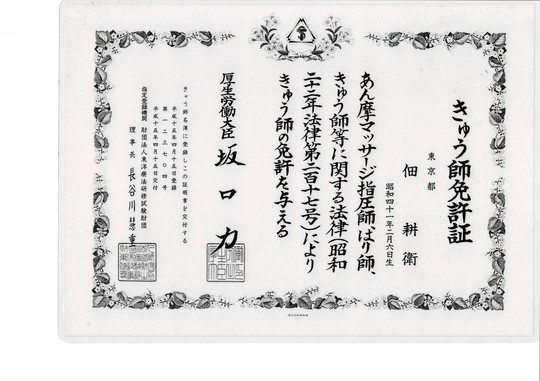 きゅう師免許証
東京都
佃耕衛
昭和四十一年二月六日生
あん摩マッサージ指圧師、はり師、
きゅう師等に関する法律(昭和
二十二年法律第二百十七号)により
きゅう師の免許を与える
厚生労働大臣 坂口力
きゅう師名簿に登録しこの証明書を交付する
平成十五年四月十五日登録
第一二三七〇四号
平成十五年四月十五日交付
指定登録機関 財団法人東洋療法研修試験財団
理事長 長谷川慧重